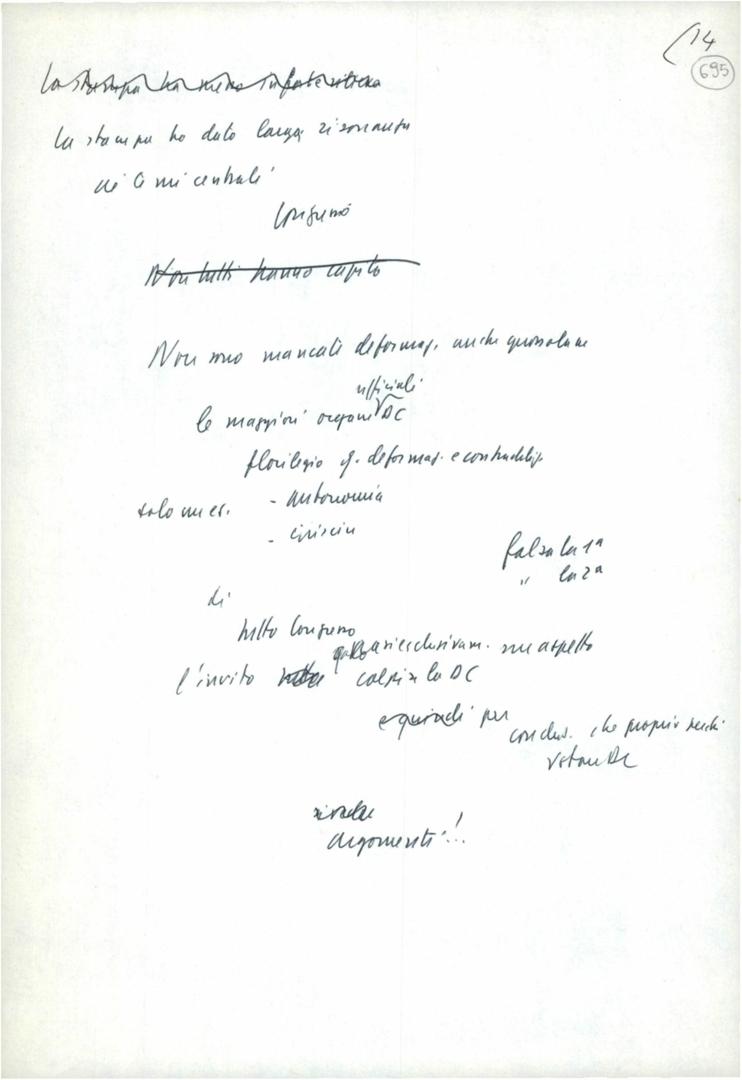 14
695
La stampa ha messo in
La stampa ha dato larga risonanza
ai temi centrali
Congresso
Non tutti hanno capito
Non sono mancate deformaz. anche grossolane
ufficiali
le maggiori organi DC
florilegio di deformaz. e contraddiz.
solo un es. - autonomia
-
falsa la 1a
" la 2a
di
tutto Congresso
quasi esclusivam. un aspetto
l'invito colpire la DC
e quindi per
conclus. che proprio
votano DC
argomenti!!